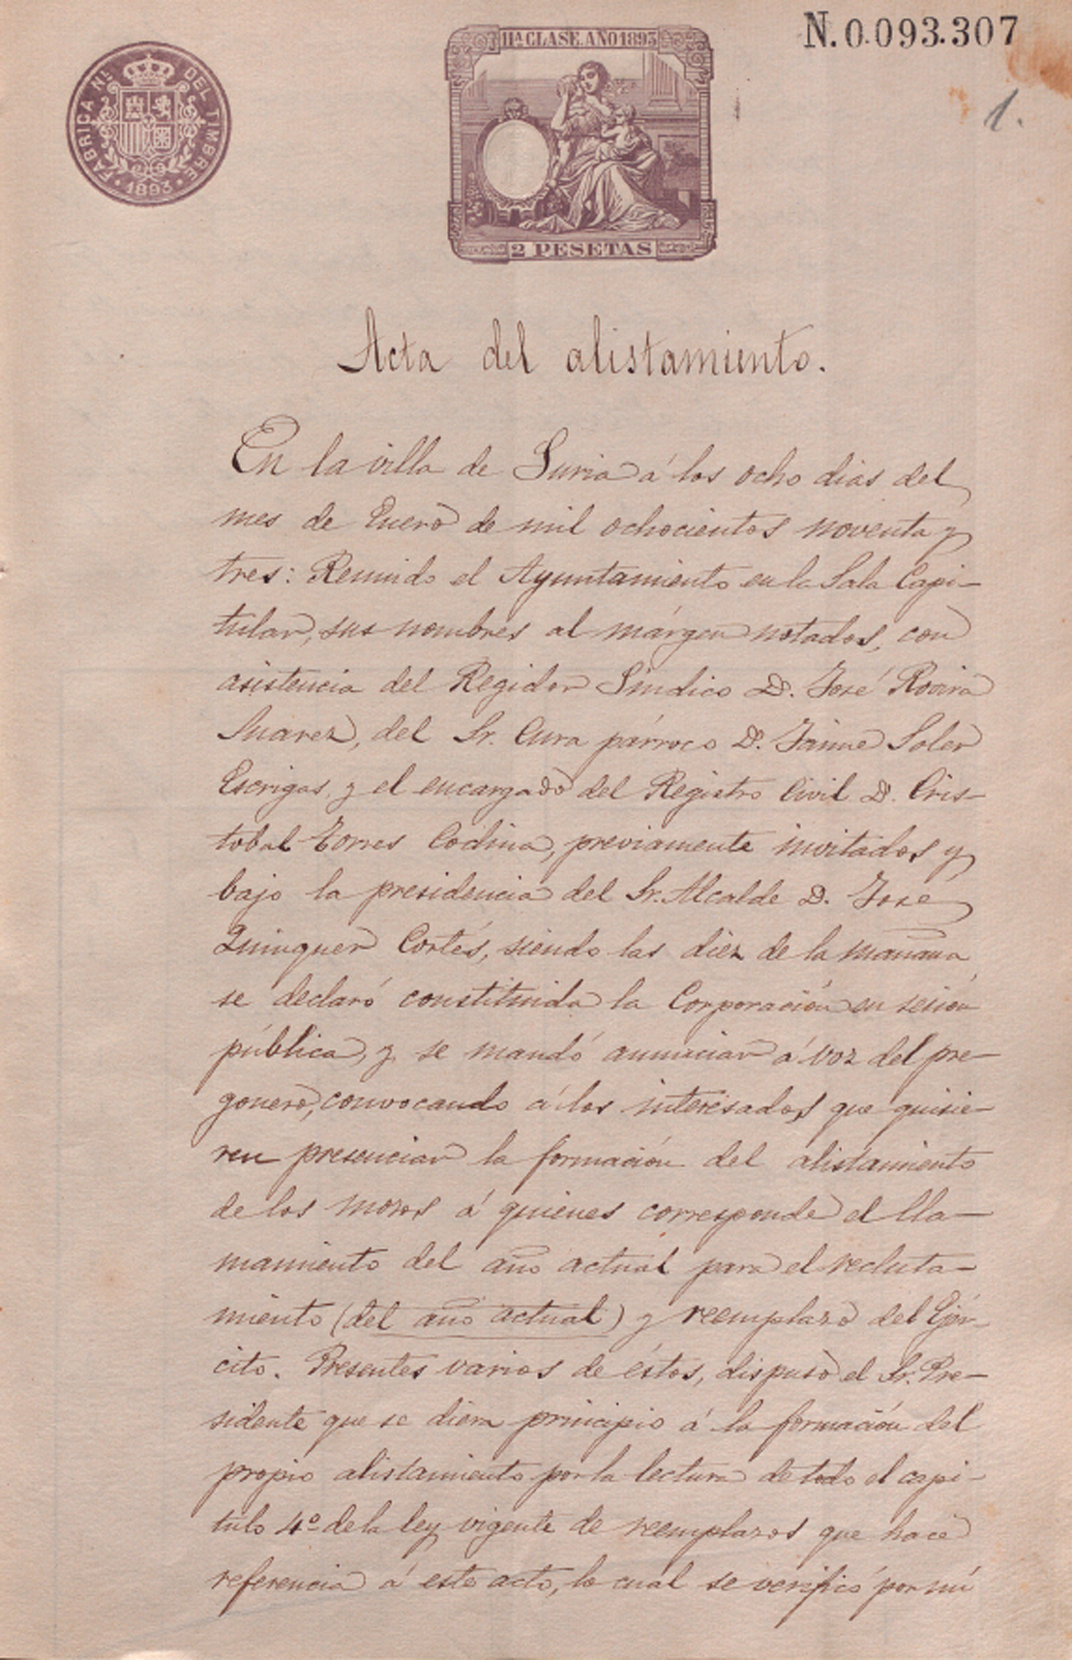 N.0.093.307
11ª CLASE. AÑO 1893
FABRICA Nˡ. DEL TIMBRE
1893
1.
2 PESETAS
Acta del alistamiento.
En la villa de Suria á los ocho dias del
mes de Enero de mil ochocientos noventa y
tres: Reunido el Ayuntamiento en la Sala Capi-
tular, sus nombres al márgen notados, con
asistencia del Regidor Síndico D. José Rovira
Suarez, del Sr. Cura párroco D. Jaime Soler
Escrigas, y el encargado del Registro Civil D. Cris-
tobal Torres Codina, previamente invitados y
bajo la presidencia del Sr. Alcalde D. José
Quinquer Cortés, siendo las diez de la mañana
se declaró constituida la Corporación en sesión
pública, y se mandó anunciar á voz del pre-
gonero, convocando á los interesados que quisie-
ren presenciar la formación del alistamiento
de los mozos á quienes corresponde el lla-
mamiento del año actual para el recluta-
miento (del año actual) y reemplazo del Ejér-
cito. Presentes varios de éstos, dispuso el Sr. Pre-
sidente que se diera principio á la formación del
propio alistamiento por la lectura de todo el capí-
tulo 4º de la ley vigente de reemplazos que hace
referencia á este acto, lo cual se verificó por mí